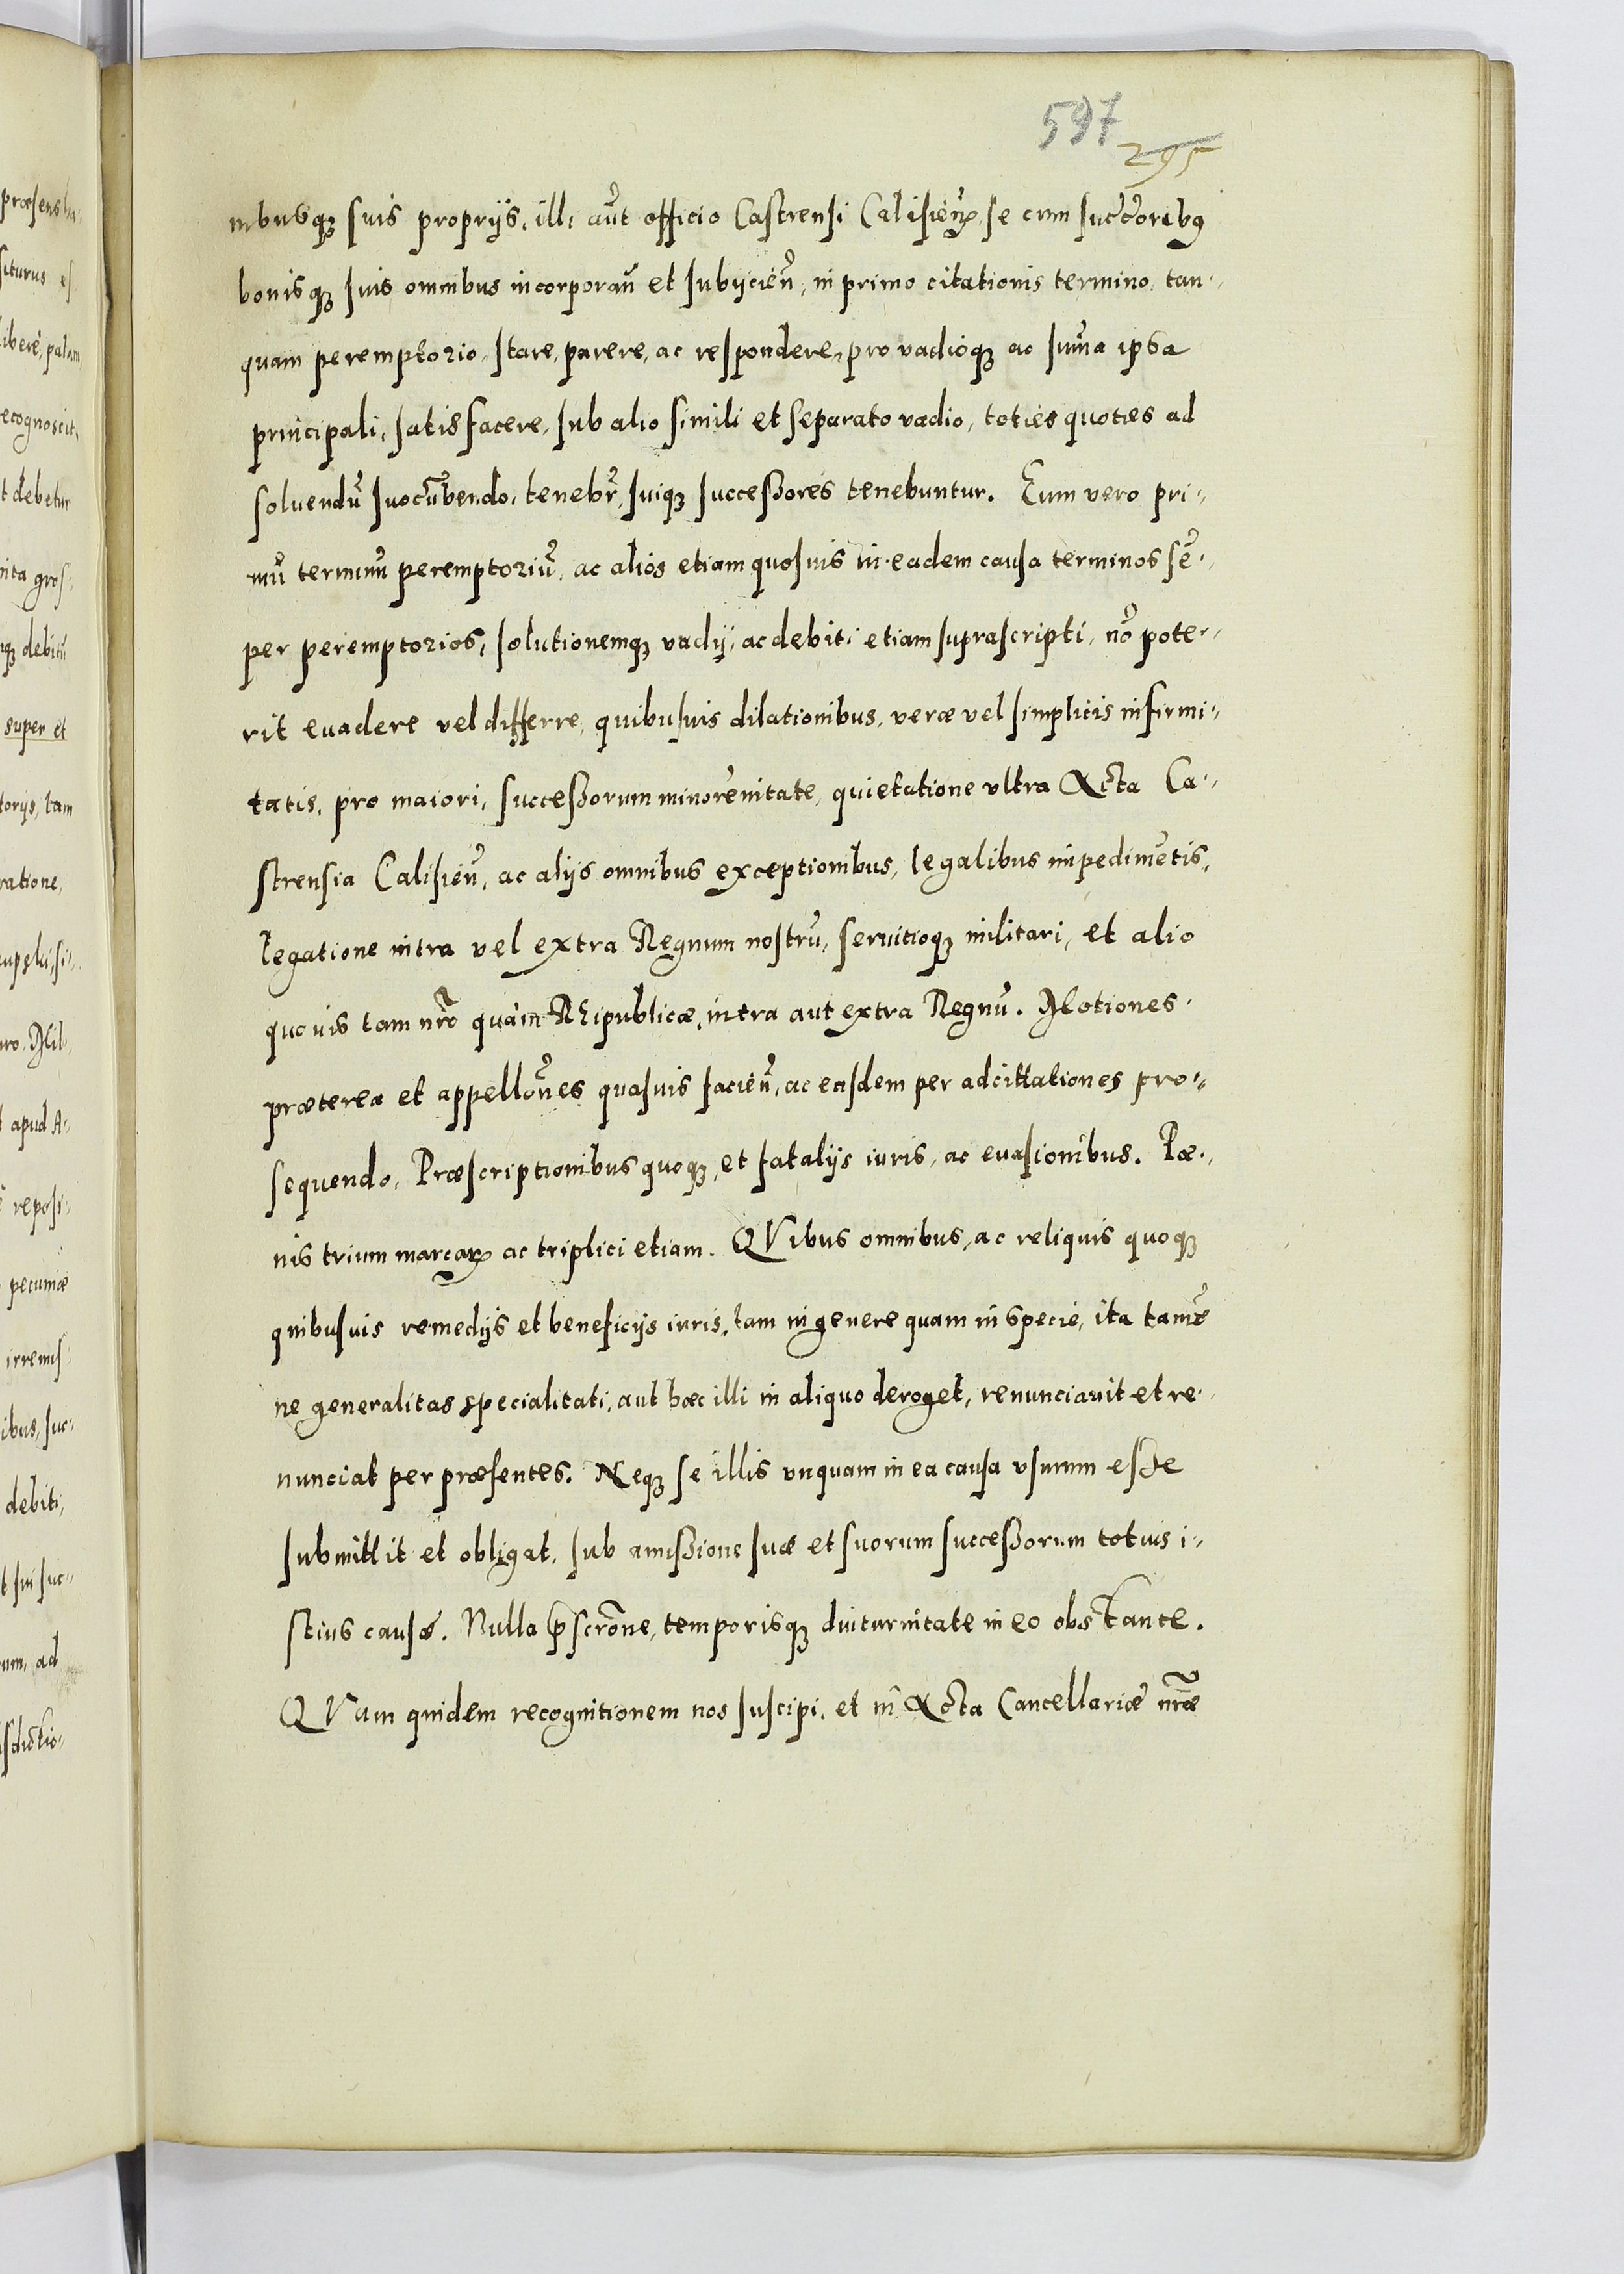 597
295
nibusq̃ suis proprijs, illi aũt officio Castrensi Calisien̄, se cum succ̃oribꝯ
bonisq̃ suis omnibus incorporan̄ et subijcien̄, in primo citationis termino, tan-
quam peremptorio, stare, parere, ac respondere, pro vadioq̃ ac sum̄a ipsa
principali, satisfacere, sub alio simili et separato vadio, toties quoties ad
soluendū succūbendo, tenebr̃, suiq̃ successores tenebuntur. Eum vero pri-
mū terminū peremptoriū, ac alios etiam quosuis in eadem causa terminos sē-
per peremptorios, solutionemq̃ vadij, ac debiti etiam suprascripti, nō pote-
rit euadere vel differre, quibusuis dilationibus, veræ vel simplicis infirmi-
tatis, pro maiori, successorum minorēnitate, quietatione vltra Acta Ca-
strensia Calisien̄, ac alijs omnibus exceptionibus, legalibus impedimētis,
legatione intra vel extra Regnum nostrū, seruitioq̃ militari, et alio
quouis tam nr̃o quàm Rẽipublicæ, intra aut extra Regnū. Motiones
præterea et appellõnes quasuis facien̄, ac easdem per adcittationes pro-
sequendo, Præscriptionibus quoq̃, et fatalijs iuris, ac euasionibus. Pæ-
nis trium marcaꝝ ac triplici etiam. QVibus omnibus, ac reliquis quoq̃
quibusuis remedijs et beneficijs iuris, tam in genere quam in specie, ita tamē
ne generalitas specialitati, aut hæc illi in aliquo deroget, renunciauit et re-
nunciat per præsentes. Neq̃ se illis vnquam in ea causa vsurum esse
submittit et obligat, sub amissione suæ et suorum successorum totius i-
stius causæ. Nulla p̃scrõne, temporisq̃ diuturnitate in eo obstante.
QVam quidem recognitionem nos suscipi, et in Acta Cancellariæ nr̃æ